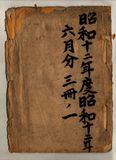 昭和十二年度昭和十二年
六月分三冊ノ一